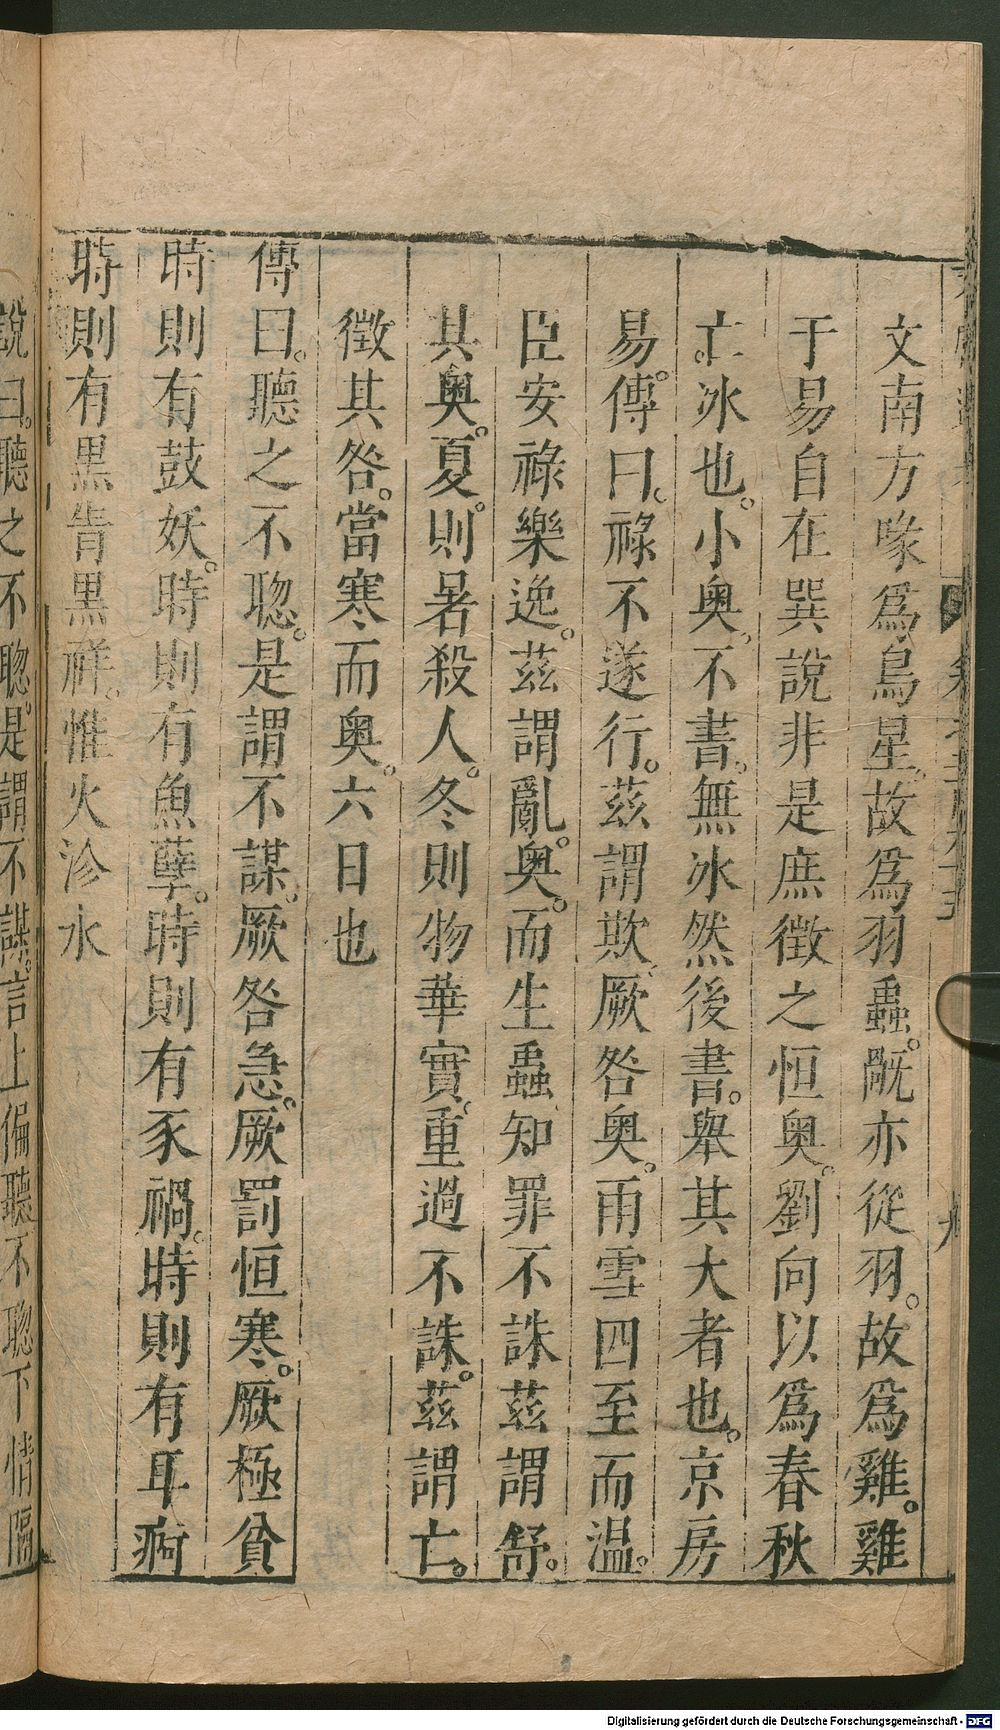 文南方喙爲鳥星故爲羽蟲。旤亦從羽。故爲雞。雞
于易自在巽說非是庶徵之恒奧。劉向以爲春秋
亡。冰也。小奧。不書。無冰然後書。舉其大者也。京房
易傳曰。祿不遂行。茲謂欺。厥咎奧。雨雪四至而溫。
臣安祿樂逸。茲謂亂。奧。而生蟲知罪不誅茲謂舒。
其奧。夏。則暑殺人。冬則物華實。重過不誅。茲謂亡。
徵其咎。當寒而奧。六日也
傳曰。聽之不聦。是謂不謀。厥咎急。厥罰恒寒。厥極貧
時則有鼓妖。時則有魚孽。時則有豕禍。時則有耳痾
時則有黑眚黑祥。惟火沴水
說曰。聽之不聦。是謂不謀。言上偏聽不聦下情隔
Digitalisierung gefördert durch die Deutsche Forschungsgemeinschaft - DFG